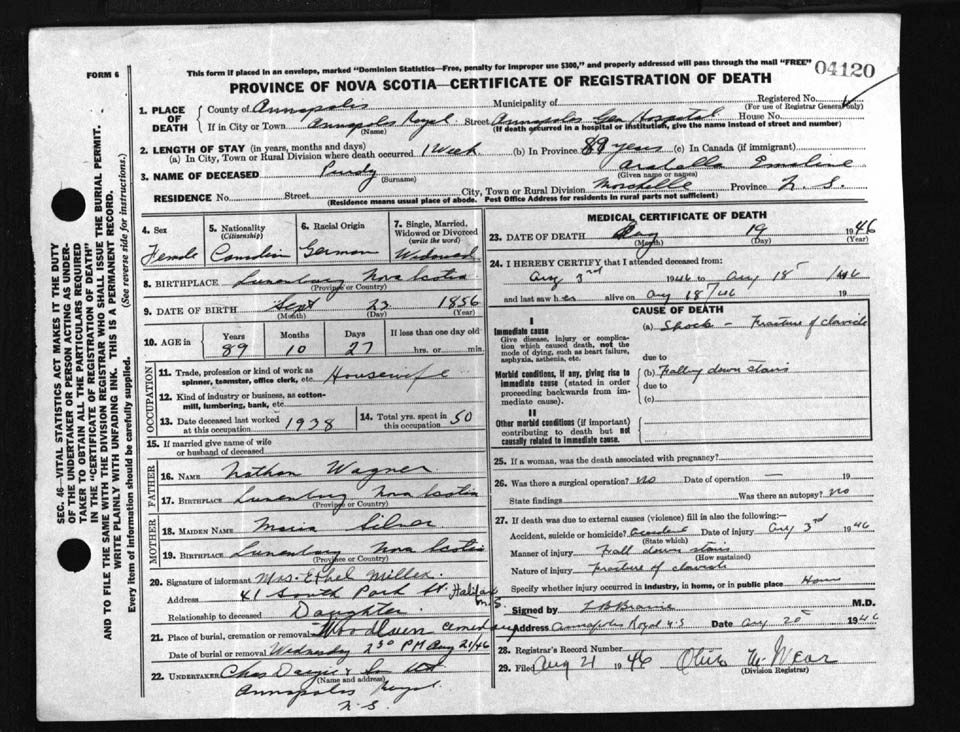 FORM 6
This form if placed in an envelope, marked "Dominion Statistics—Free, penalty for improper use $300," and properly addressed will pass through the mail "FREE"
04120
PROVINCE OF NOVA SCOTIA—CERTIFICATE OF REGISTRATION OF DEATH
Registered No.
(For use of Registrar General only)
1. PLACE OF DEATH
County of Annapolis Municipality of
If in City or Town Annapolis Royal Street Annapolis Gen Hospital House No.
(Name) (If death occurred in a hospital or institution, give the name instead of street and number)
2. LENGTH OF STAY (in years, months and days)
(a) In City, Town or Rural Division where death occurred 1 Week (b) In Province 89 years (c) In Canada (if immigrant)
3. NAME OF DECEASED Purdy Arabella Emeline
(Surname) (Given name or names)
RESIDENCE No. Street City, Town or Rural Division Province N.S.
(Residence means usual place of abode. Post Office Address for residents in rural parts not sufficient)
4. Sex
Female
5. Nationality
(Citizenship)
Canadian
6. Racial Origin
German
7. Single, Married, Widowed or Divorced
(write the word)
Widowed
8. BIRTHPLACE Lunenburg Nova Scotia
(Province or Country)
9. DATE OF BIRTH Sept 23 1856
(Month) (Day) (Year)
10. AGE in
Years Months Days If less than one day old
89 10 27 hrs. or min.
OCCUPATION
11. Trade, profession or kind of work as spinner, teamster, office clerk, etc. Housewife
12. Kind of industry or business, as cotton-mill, lumbering, bank, etc.
13. Date deceased last worked at this occupation 1938
14. Total yrs. spent in this occupation 50
15. If married give name of wife or husband of deceased
FATHER
16. NAME Nathan Wagner
17. BIRTHPLACE Lunenburg Nova Scotia
(Province or Country)
MOTHER
18. MAIDEN NAME
19. BIRTHPLACE Lunenburg Nova Scotia
(Province or Country)
20. Signature of informant Mrs. Ethel Miller
Address 41 South Park St. Halifax N.S.
Relationship to deceased Daughter
21. Place of burial, cremation or removal Woodlawn Cemetery
Date of burial or removal Wednesday 2 30 PM Aug 21/46
22. UNDERTAKER Chas Dargie & Son Ltd
(Name and address)
Annapolis Royal
N.S.
MEDICAL CERTIFICATE OF DEATH
23. DATE OF DEATH Aug 19 1946
(Month) (Day) (Year)
24. I HEREBY CERTIFY that I attended deceased from:
Aug 3rd 1946 to Aug 18 1946
and last saw her alive on Aug 18/46 19
CAUSE OF DEATH
I
Immediate cause
Give disease, injury or complication which caused death, not the mode of dying, such as heart failure, asphyxia, asthenia, etc.
(a) Shock – Fracture of clavicle
due to
Morbid conditions, if any, giving rise to immediate cause (stated in order proceeding backwards from immediate cause).
(b) Falling down stairs
due to
(c)
II
Other morbid conditions (if important) contributing to death but not causally related to immediate cause.
25. If a woman, was the death associated with pregnancy?
26. Was there a surgical operation? No Date of operation 19
State findings Was there an autopsy? No
27. If death was due to external causes (violence) fill in also the following:—
Accident, suicide or homicide? Accident Date of injury Aug 3rd 1946
(State which)
Manner of injury Fall down stairs
(How sustained)
Nature of injury Fracture of clavicle
Specify whether injury occurred in industry, in home, or in public place Home
Signed by M.D.
Address Annapolis Royal N.S. Date Aug 20 1946
28. Registrar's Record Number
29. Filed Aug 21 1946
(Division Registrar)
SEC. 46—VITAL STATISTICS ACT MAKES IT THE DUTY
OF THE UNDERTAKER OR PERSON ACTING AS UNDER-
TAKER TO OBTAIN ALL THE PARTICULARS REQUIRED
IN THE "CERTIFICATE OF REGISTRATION OF DEATH"
AND TO FILE THE SAME WITH THE DIVISION REGISTRAR WHO SHALL ISSUE THE BURIAL PERMIT.
WRITE PLAINLY WITH UNFADING INK. THIS IS A PERMANENT RECORD.
Every item of information should be carefully supplied. (See reverse side for instructions.)